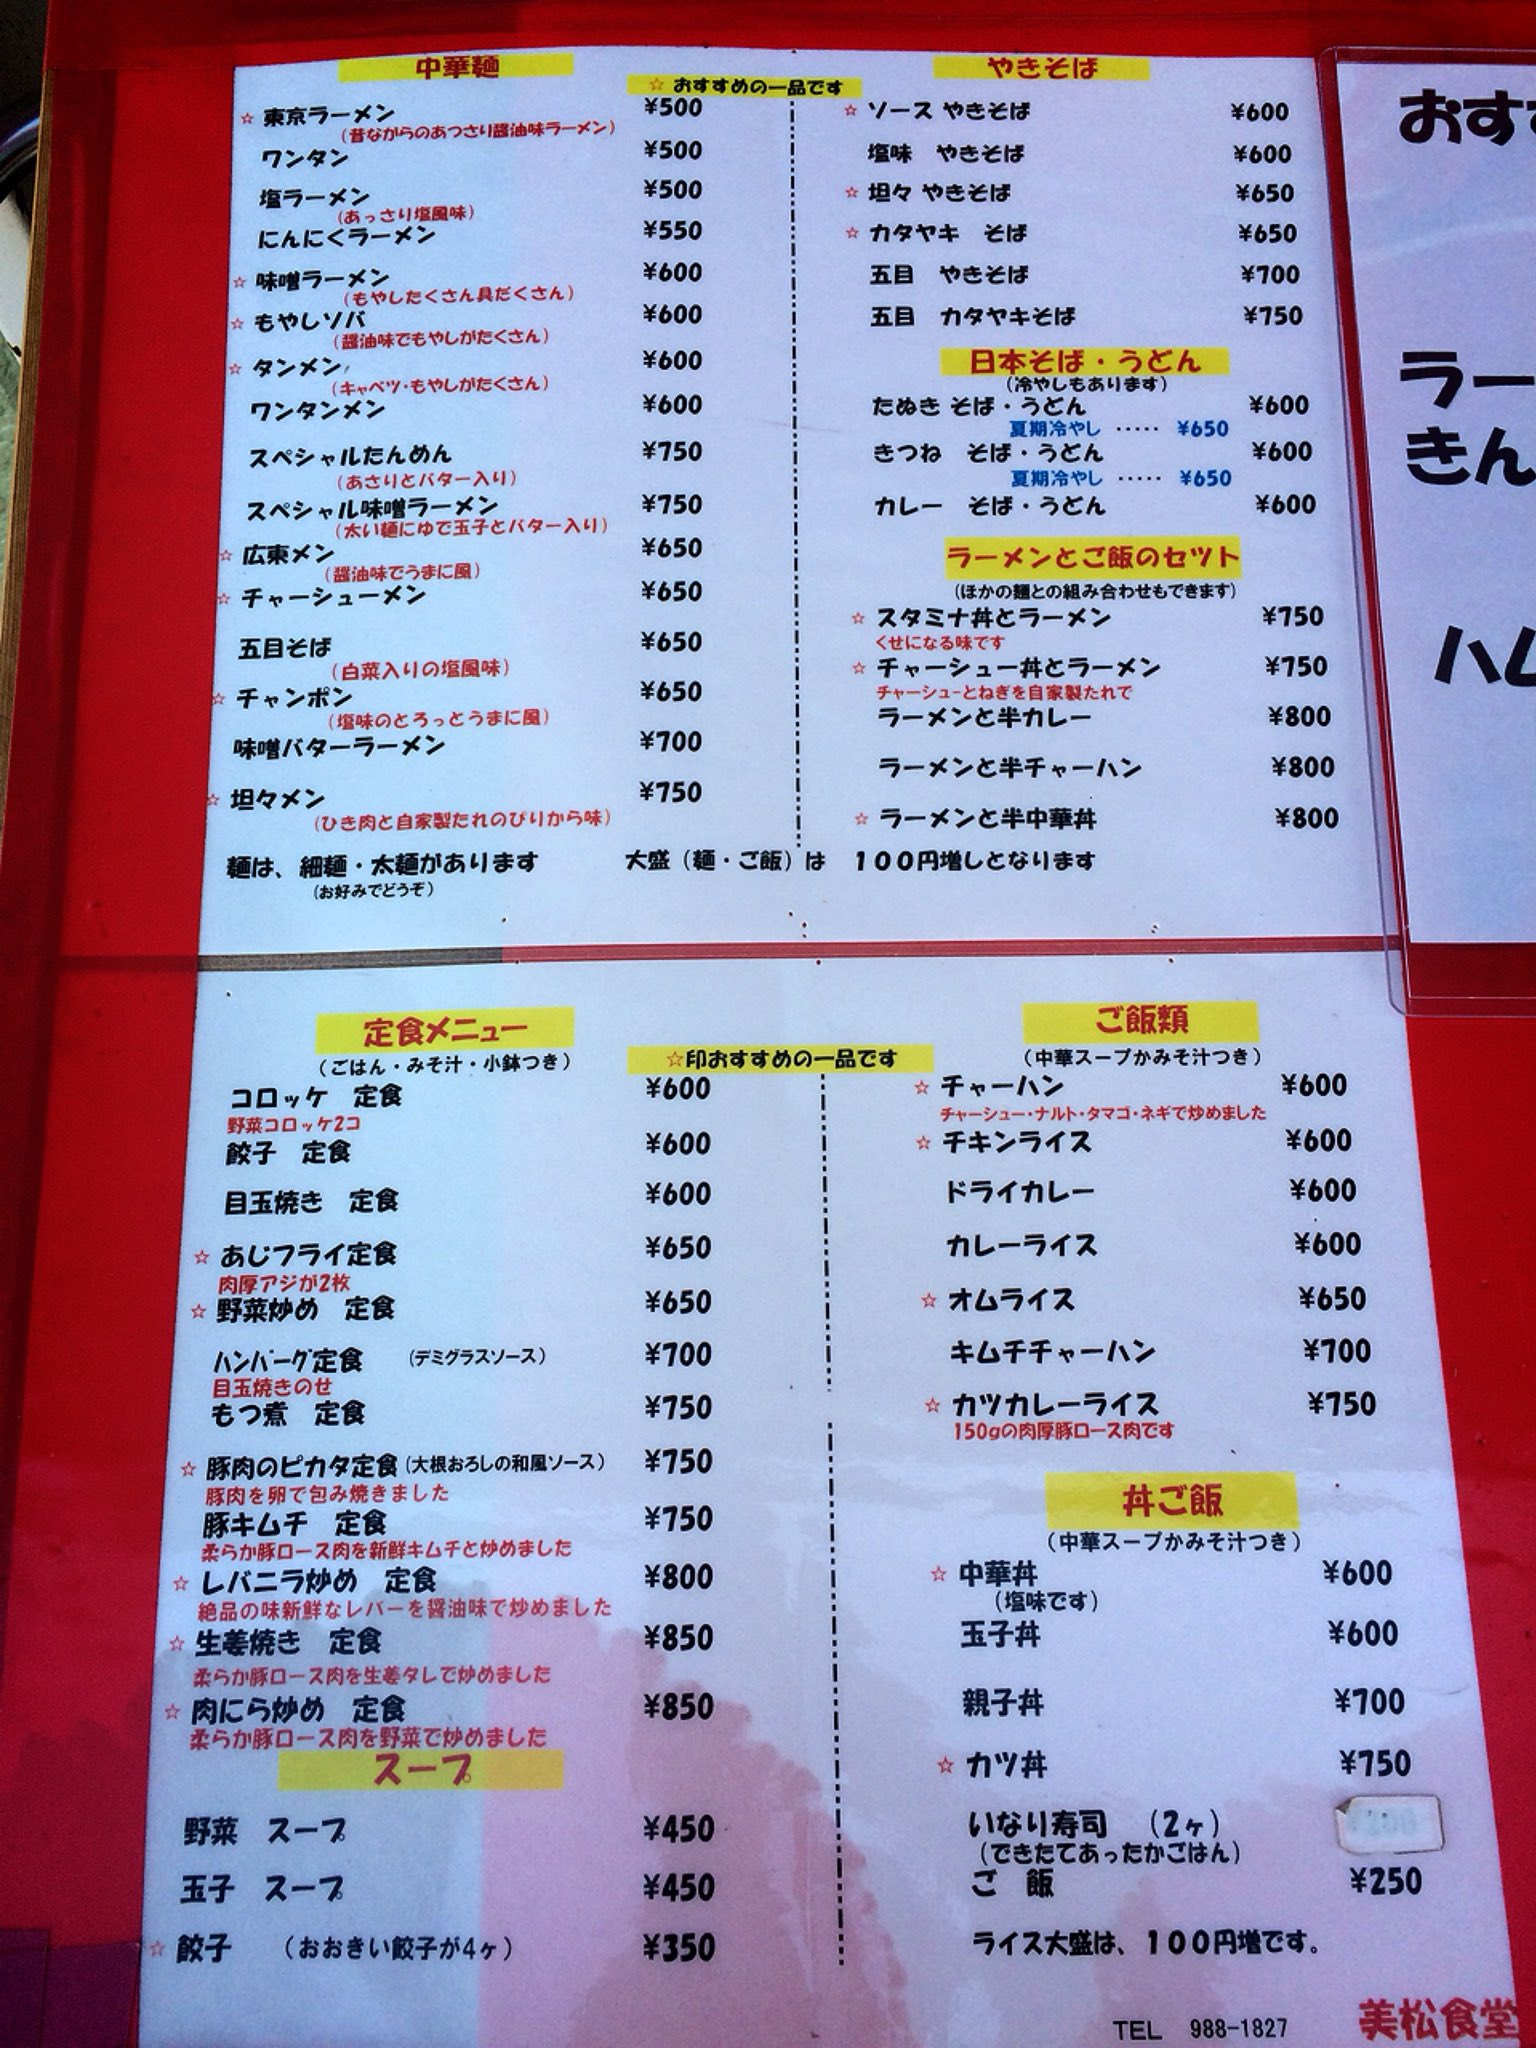 中華麺
☆ おすすめの一品です
☆ 東京ラーメン ¥500
(昔ながらのあつさり醤油味ラーメン)
ワンタン ¥500
塩ラーメン ¥500
(あっさり塩風味)
にんにくラーメン ¥550
☆ 味噌ラーメン ¥600
(もやしたくさん具だくさん)
☆ もやしソバ ¥600
(醤油味でもやしがたくさん)
☆ タンメン ¥600
(キャベツ・もやしがたくさん)
ワンタンメン ¥600
スペシャルたんめん ¥750
(あさりとバター入り)
スペシャル味噌ラーメン ¥750
(太い麺にゆで玉子とバター入り)
☆ 広東メン ¥650
(醤油味でうまに風)
☆ チャーシューメン ¥650
五目そば ¥650
(白菜入りの塩風味)
☆ チャンポン ¥650
(塩味のとろっとうまに風)
味噌バターラーメン ¥700
☆ 坦々メン ¥750
(ひき肉と自家製たれのぴりから味)
やきそば
☆ ソース やきそば ¥600
塩味 やきそば ¥600
☆ 坦々 やきそば ¥650
☆ カタヤキ そば ¥650
五目 やきそば ¥700
五目 カタヤキそば ¥750
日本そば・うどん
(冷やしもあります)
たぬき そば・うどん ¥600
夏期冷やし ・・・・・ ¥650
きつね そば・うどん ¥600
夏期冷やし ・・・・・ ¥650
カレー そば・うどん ¥600
ラーメンとご飯のセツト
(ほかの麺との組み合わせもできます)
☆ スタミナ丼とラーメン ¥750
くせになる味です
☆ チャーシュー丼とラーメン ¥750
チャーシューとねぎを自家製たれで
ラーメンと半カレー ¥800
ラーメンと半チャーハン ¥800
☆ ラーメンと半中華丼 ¥800
麺は、細麺・太麺があります 大盛(麺・ご飯)は 100円増しとなります
(お好みでどうぞ)
定食メニュー
(ごはん・みそ汁・小鉢つき)
☆印おすすめの一品です
コロッケ 定食 ¥600
野菜コロッケ2コ
餃子 定食 ¥600
目玉焼き 定食 ¥600
☆ あじフライ定食 ¥650
肉厚アジが2枚
☆ 野菜炒め 定食 ¥650
ハンバーグ定食 (デミグラスソース) ¥700
目玉焼きのせ
もつ煮 定食 ¥750
☆ 豚肉のピカタ定食(大根おろしの和風ソース) ¥750
豚肉を卵で包み焼きました
豚キムチ 定食 ¥750
柔らか豚ロース肉を新鮮キムチと炒めました
☆ レバニラ炒め 定食 ¥800
絶品の味新鮮なレバーを醤油味で炒めました
☆ 生姜焼き 定食 ¥850
柔らか豚ロース肉を生姜タレで炒めました
☆ 肉にら炒め 定食 ¥850
柔らか豚ロース肉を野菜で炒めました
スープ
野菜 スープ ¥450
玉子 スープ ¥450
☆ 餃子 (おおきい餃子が4ヶ) ¥350
ご飯類
(中華スープかみそ汁つき)
☆ チャーハン ¥600
チャーシュー・ナルト・タマゴ・ネギで炒めました
☆ チキンライス ¥600
ドライカレー ¥600
カレーライス ¥600
☆ オムライス ¥650
キムチチャーハン ¥700
☆ カツカレーライス ¥750
150gの肉厚豚ロース肉です
丼ご飯
(中華スープかみそ汁つき)
☆ 中華丼 ¥600
(塩味です)
玉子丼 ¥600
親子丼 ¥700
☆ カツ丼 ¥750
いなり寿司 (2ヶ)
(できたてあったかごはん)
ご 飯 ¥250
ライス大盛は、100円増です。
TEL 988-1827
美松食堂
おす
ラー
きん
ハム